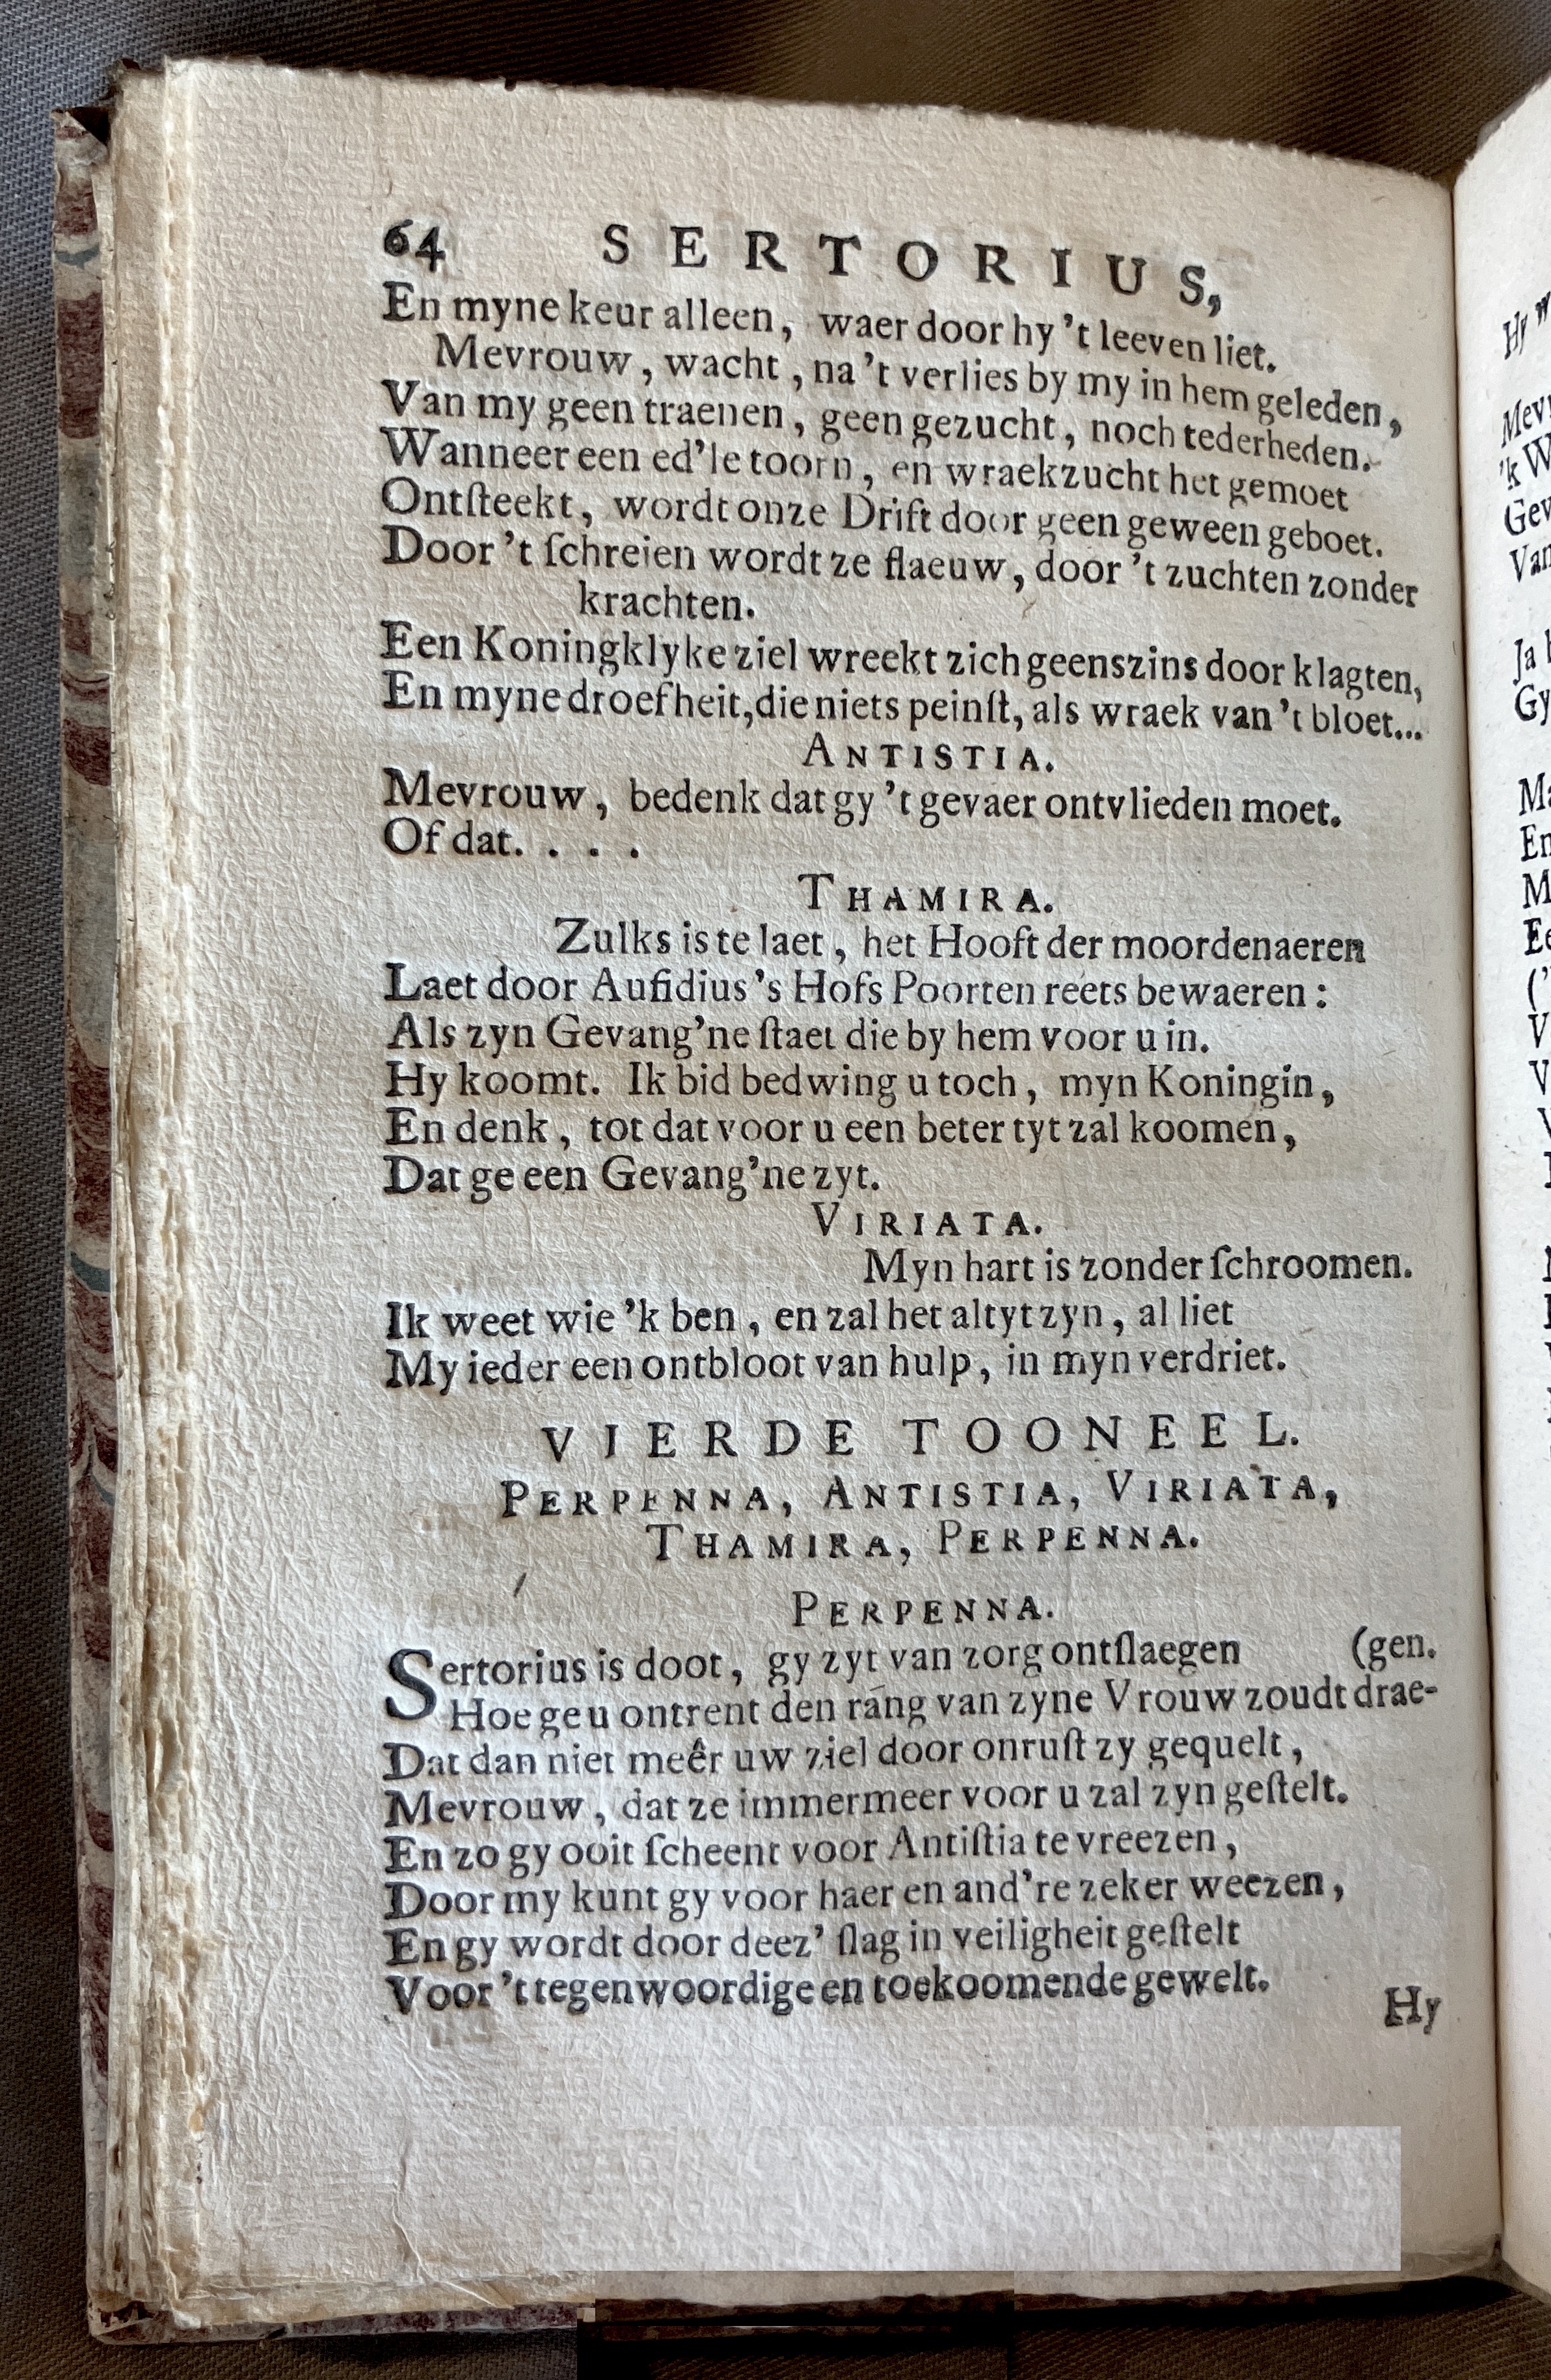 64 SERTORIUS,
En myne keur alleen, waer door hy 't leeven liet.
Mevrouw, wacht, na 't verlies by my in hem geleden,
Van my geen traenen, geen gezucht, noch tederheden.
Wanneer een ed'le toorn, en wraekzucht het gemoet
Ontſteekt, wordt onze Drift door geen geween geboet.
Door 't ſchreien wordt ze flaeuw, door 't zuchten zonder
krachten.
Een Koningklyke ziel wreekt zich geenszins door klagten,
En myne droefheit, die niets peinſt, als wraek van 't bloet...
ANTISTIA.
Mevrouw, bedenk dat gy 't gevaer ontvlieden moet.
Of dat. . . .
THAMIRA.
Zulks is te laet, het Hooft der moordenaeren
Laet door Aufidius 's Hofs Poorten reets bewaeren:
Als zyn Gevang'ne ſtaet die by hem voor u in.
Hy koomt. Ik bid bedwing u toch, myn Koningin,
En denk, tot dat voor u een beter tyt zal koomen,
Dat ge een Gevang'ne zyt.
VIRIATA.
Myn hart is zonder ſchroomen.
Ik weet wie 'k ben, en zal het altyt zyn, al liet
My ieder een ontbloot van hulp, in myn verdriet.
VIERDE TOONEEL.
PERPENNA, ANTISTIA, VIRIATA,
THAMIRA, PERPENNA.
PERPENNA.
Sertorius is doot, gy zyt van zorg ontſlaegen (gen.
Hoe ge u ontrent den rang van zyne Vrouw zoudt drae-
Dat dan niet meêr uw ziel door onruſt zy gequelt,
Mevrouw, dat ze immermeer voor u zal zyn geſtelt.
En zo gy ooit ſcheent voor Antiſtia te vreezen,
Door my kunt gy voor haer en and're zeker weezen,
En gy wordt door deez' ſlag in veiligheit geſtelt
Voor 't tegenwoordige en toekoomende gewelt.
Hy